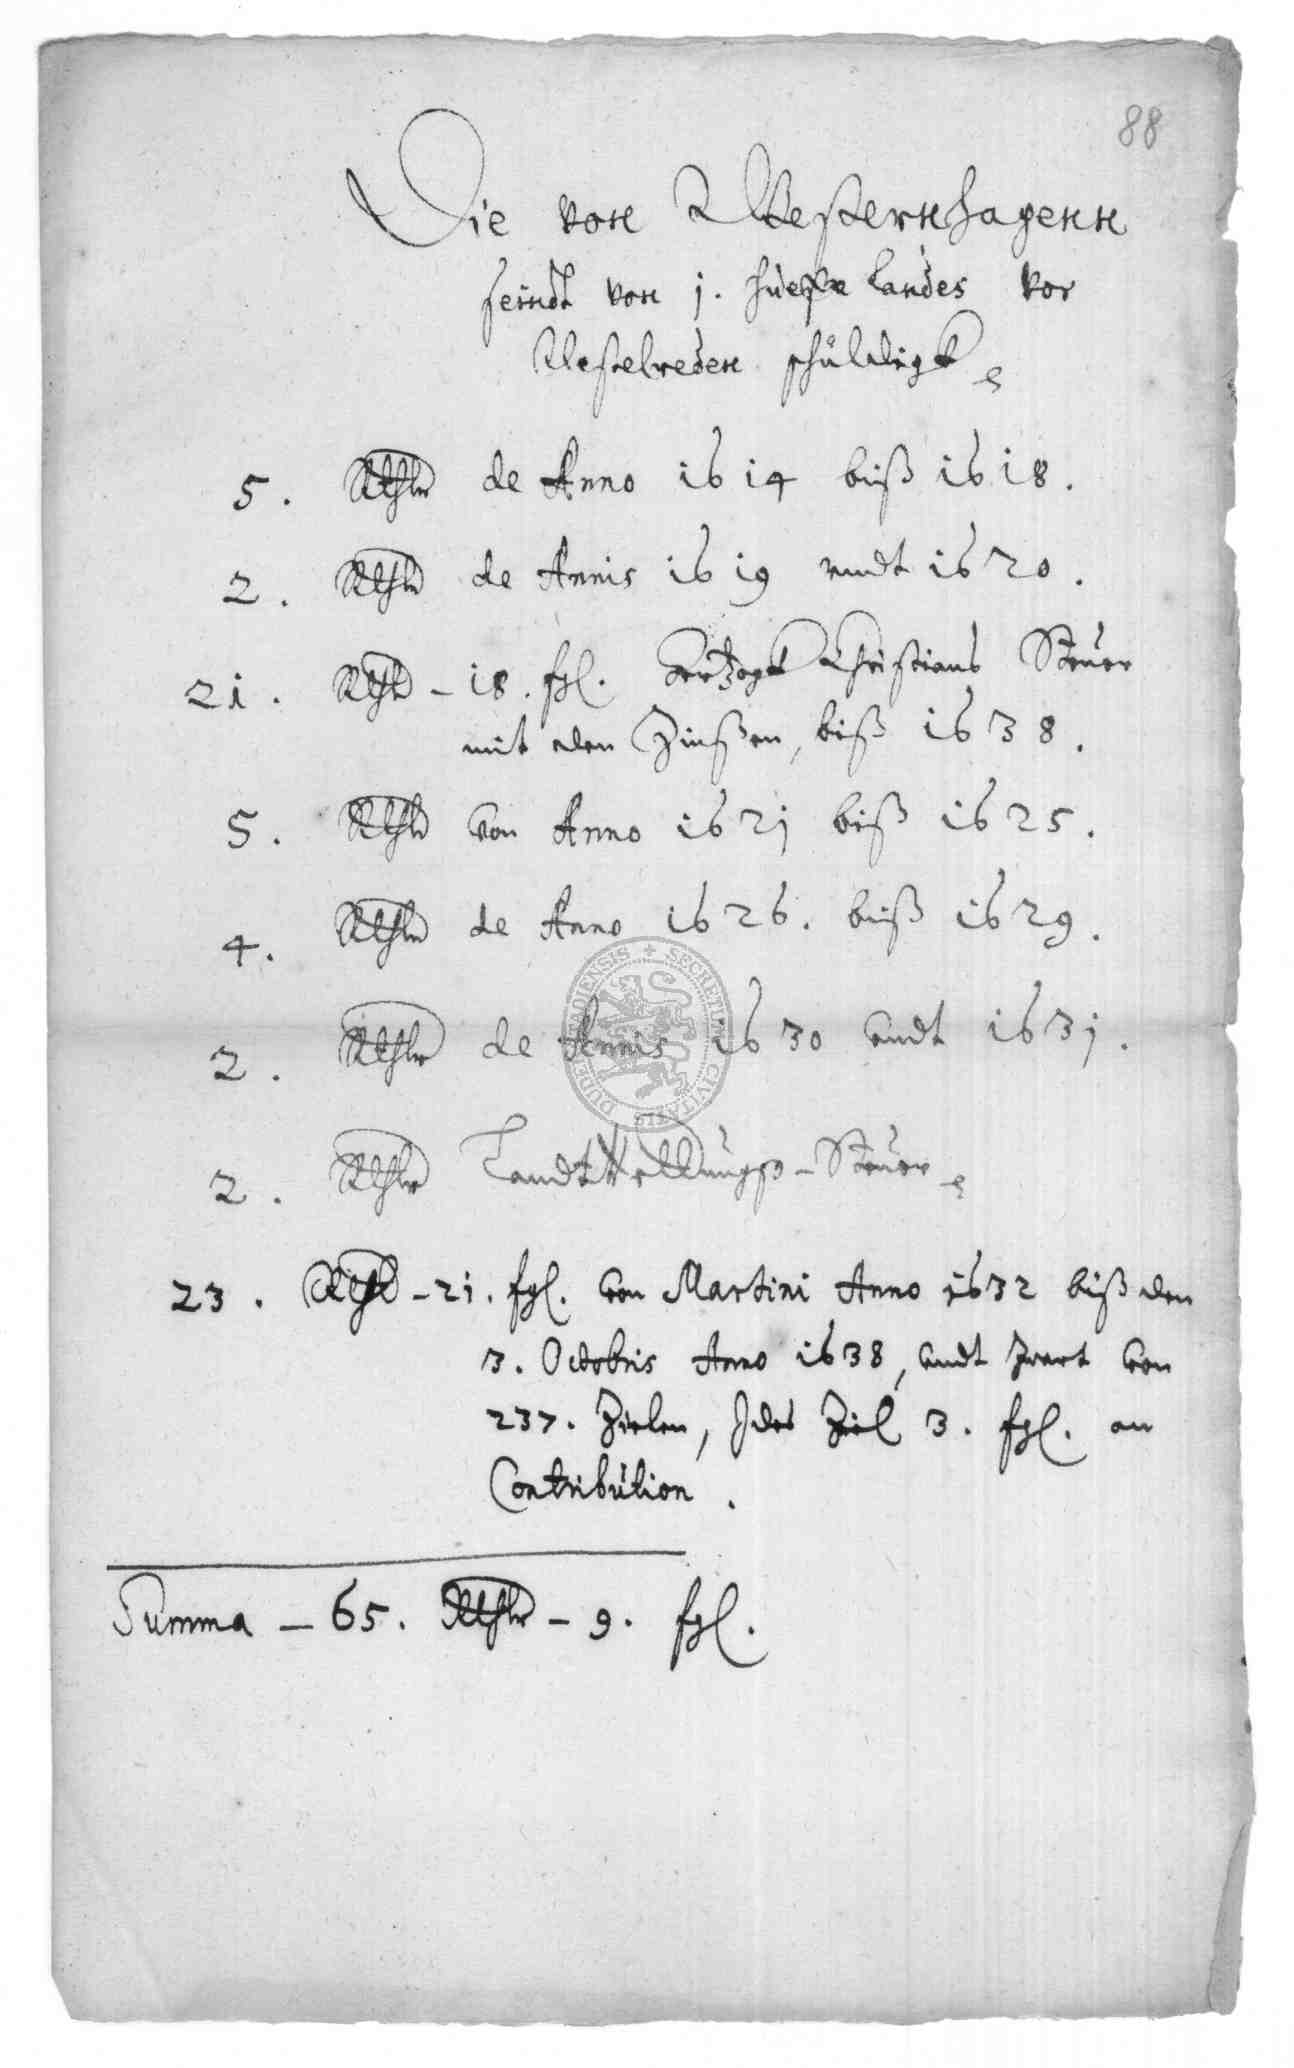 88
Die von Westernhagenn
seindt von j. huefe Landes vor
Westelreden schuldigk
5. Rthlr de Anno 1614 biß 1618.
2. Rthlr de Annis 1619 undt 1620.
21. Rthlr - 18. fgl. Hertzogk Christians Steuer
mit den Zinßen, biß 1638.
5. Rthlr von Anno 162j biß 1625.
4. Rthlr de Anno 1626. biß 1629.
2. Rthlr de Annis 1630 undt 163j.
2. Rthlr Landt Steuer
23. Rthlr - 21. fgl. von Martini Anno 1632 biß den
3. Octobris Anno 1638, undt zwart von
237. Zielen, Jdes Ziel 3. fgl. an
Contribution.
Summa - 65. Rthlr - 9. fgl.
SECRETUM CIVITATIS DUDERSTADIENSIS